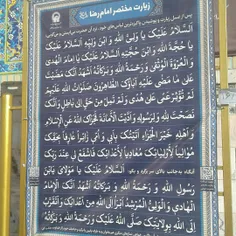 زیارت مختصر امام رضا
اَلسَّلامُ عَلَیْکَ یا وَلِیَّ اللهِ وَ ابْنَ وَلِیِّهِ اَلسَّلامُ عَلَیْکَ
یا حُجَّةَ اللهِ وَ ابْنَ حُجَّتِهِ اَلسَّلامُ عَلَیْکَ یا اِمامَ الْهُدی
وَ الْعُرْوَةَ الْوُثْقی وَ رَحْمَةُ اللهِ وَ بَرَکاتُهُ اَشْهَدُ اَنَّکَ مَضَیْتَ
عَلی ما مَضی عَلَیْهِ آباؤُکَ الطّاهِرُونَ صَلَواتُ اللهِ عَلَیْهِمْ
لَمْ تُؤْثِرْ عَمًی عَلی هُدًی وَ لَمْ تَمِلْ مِنْ حَقٍّ اِلی باطِلٍ وَ اَنَّکَ
نَصَحْتَ لِلّهِ وَ لِرَسُولِهِ وَ اَدَّیْتَ الْاَمانَةَ فَجَزاکَ اللهُ عَنِ الْاِسْلامِ
وَ اَهْلِهِ خَیْرَ الْجَزاءِ اَتَیْتُکَ بِاَبی وَ اُمّی زائِراً عارِفاً بِحَقِّکَ
مُوالِیاً لِاَوْلِیائِکَ مُعادِیاً لِاَعْدائِکَ فَاشْفَعْ لی عِنْدَ رَبِّکَ
اَلسَّلامُ عَلَیْکَ یا مَوْلایَ یَا بْنَ
رَسُولِ اللهِ وَ رَحْمَةُ اللهِ وَ بَرَکاتُهُ اَشْهَدُ اَنَّکَ الْاِمامُ
الْهادی وَ الْوَلِیُّ الْمُرْشِدُ اَبْرَأُ اِلَی اللهِ مِنْ اَعْدائِکَ وَ اَتَقَرَّبُ
اِلَی اللهِ بِوِلایَتِکَ صَلَّی اللهُ عَلَیْکَ وَ رَحْمَةُ اللهِ وَ بَرَکاتُهُ